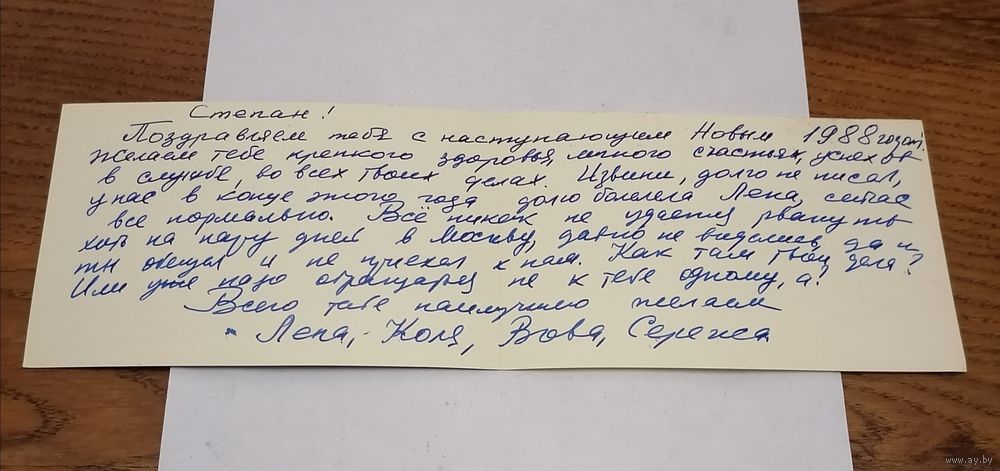 Степан!
Поздравляем тебя с наступающим Новым 1988 годом!
Желаем тебе крепкого здоровья, много счастья, успехов
в службе, во всех твоих делах. Извини, долго не писал,
у нас в конце этого года долго болела Лена, сейчас
все нормально. Всё никак не удается рвануть
хоть на пару дней в Москву, давно не виделись, да и
ты обещал и не приехал к нам. Как там твои дела?
Или уже надо обращаться не к тебе одному, а?
Всего тебе наилучшего желаем
Лена, Коля, Вова, Сережа
www.ay.by